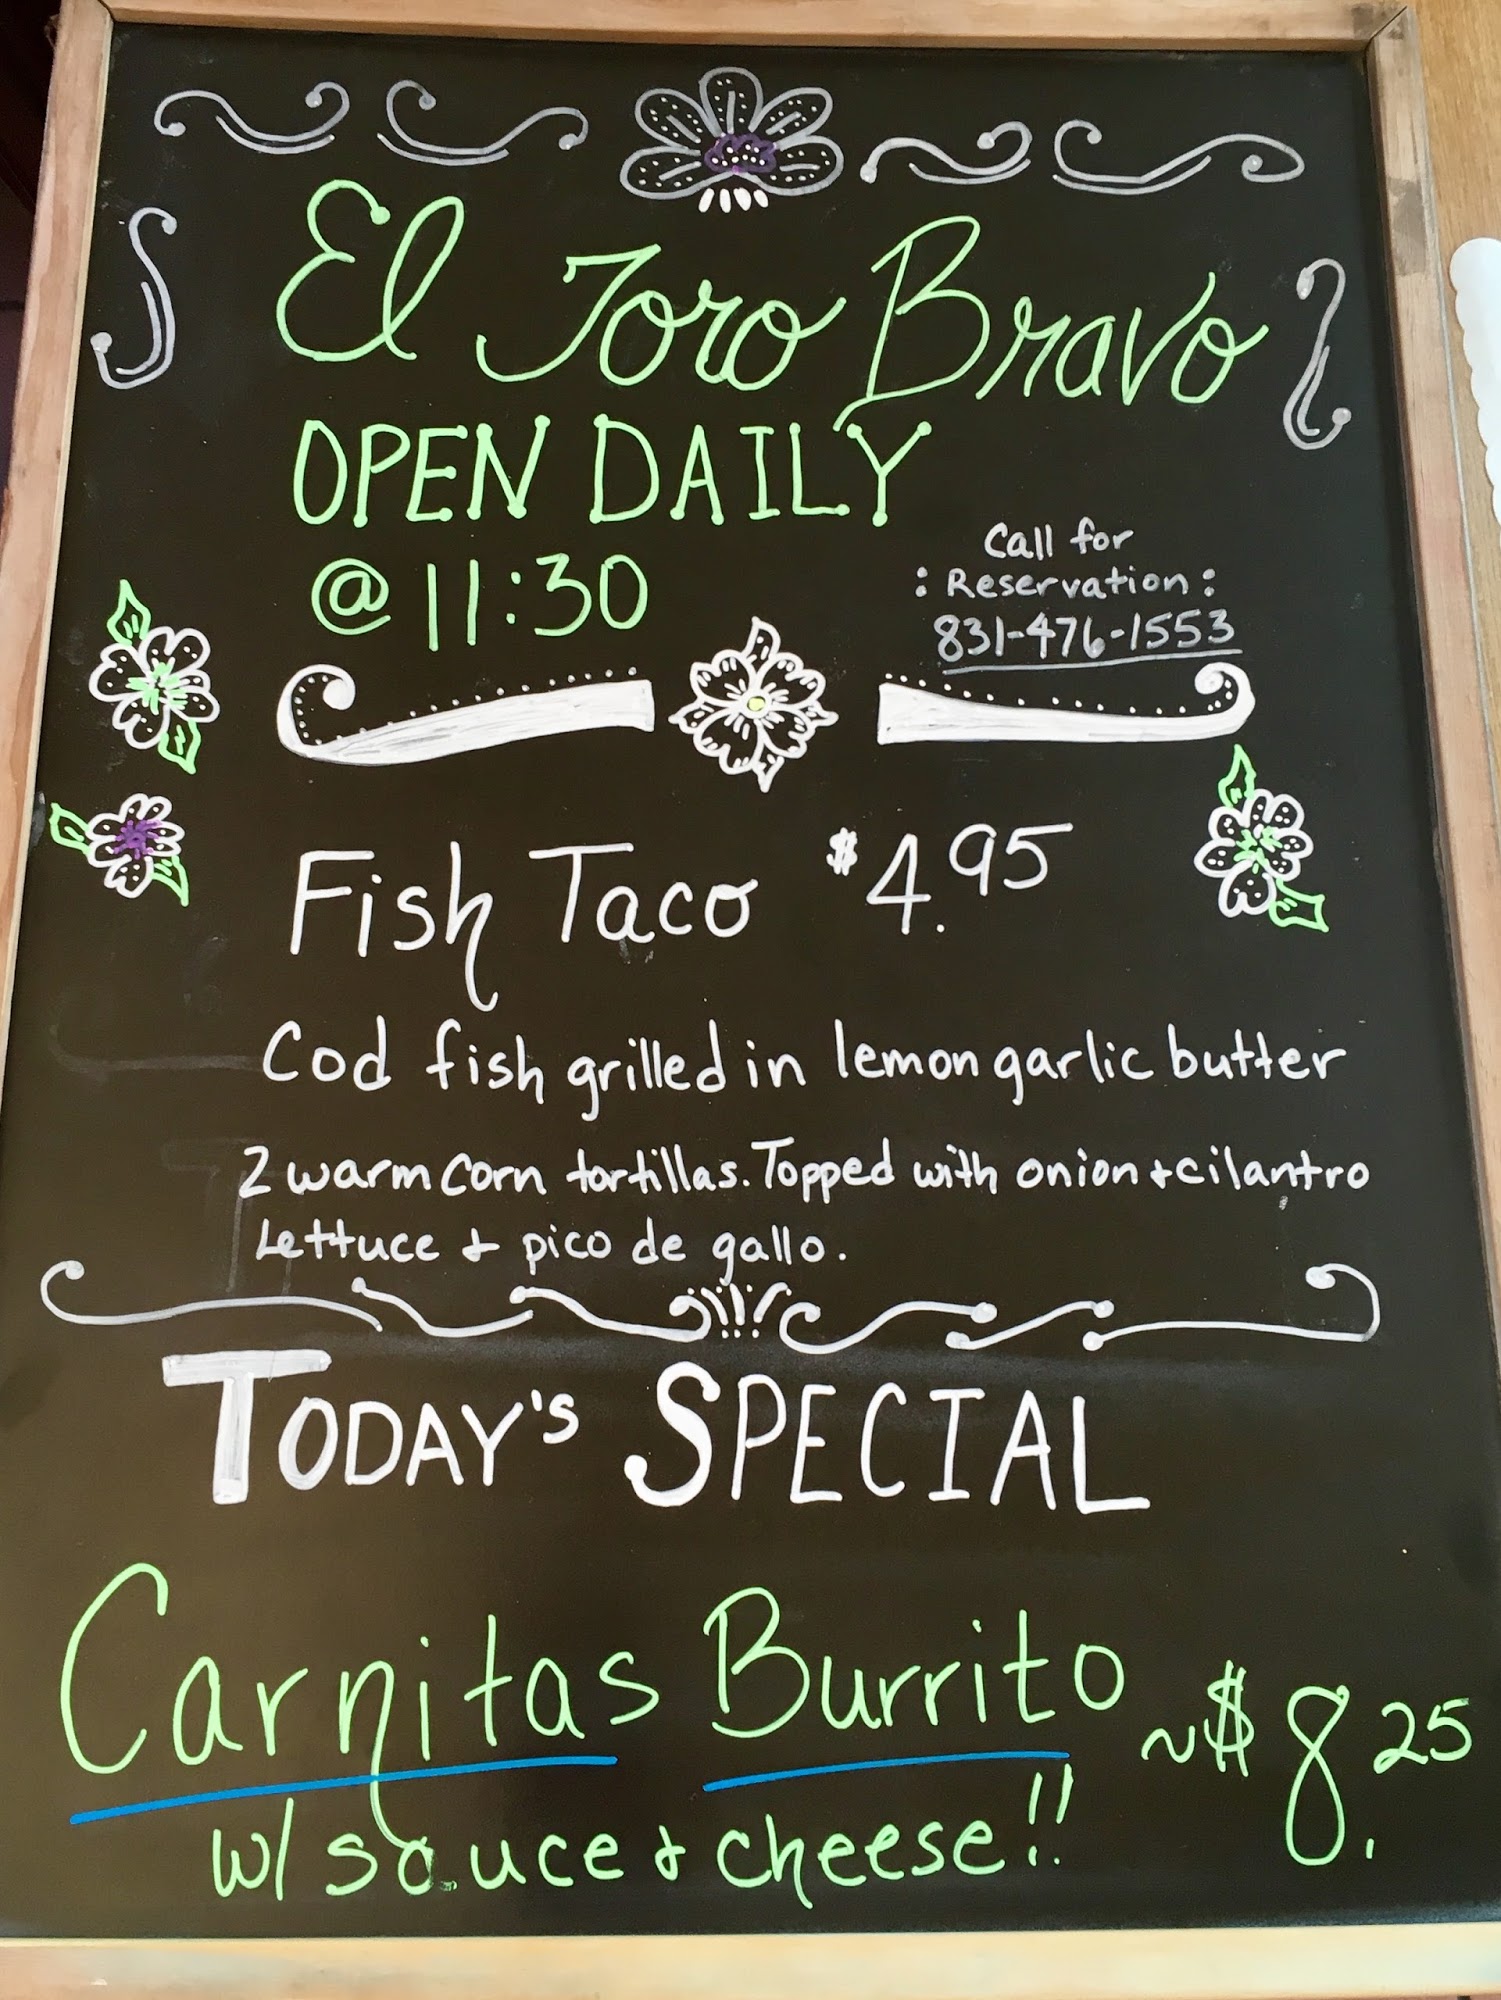 El Toro Bravo
OPEN DAILY
@ 11:30
Call for
: Reservation :
831-476-1553
Fish Taco $4.95
Cod fish grilled in lemon garlic butter
2 warm corn tortillas. Topped with onion + cilantro
Lettuce + pico de gallo.
TODAY'S SPECIAL
Carnitas Burrito ~ $8.25
w/ sauce + cheese!!